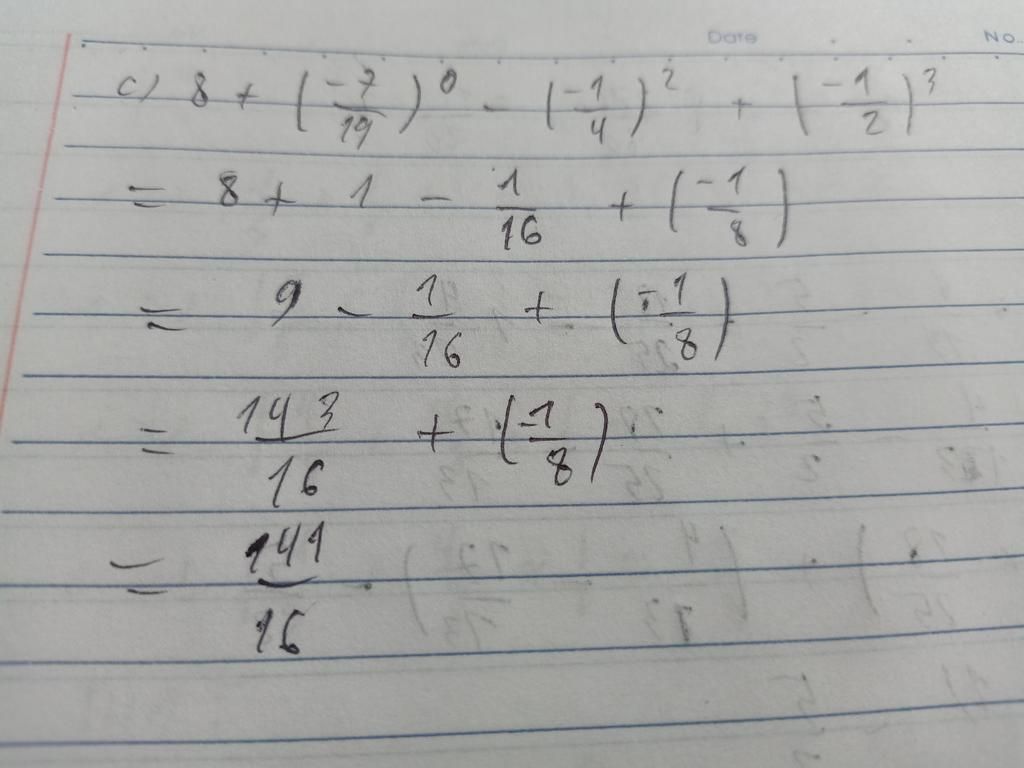 Date No.
c) 8 + (-7/19)^0 - (-1/4)^2 + (-1/2)^3
= 8 + 1 - 1/16 + (-1/8)
= 9 - 1/16 + (-1/8)
= 143/16 + (-1/8)
= 141/16